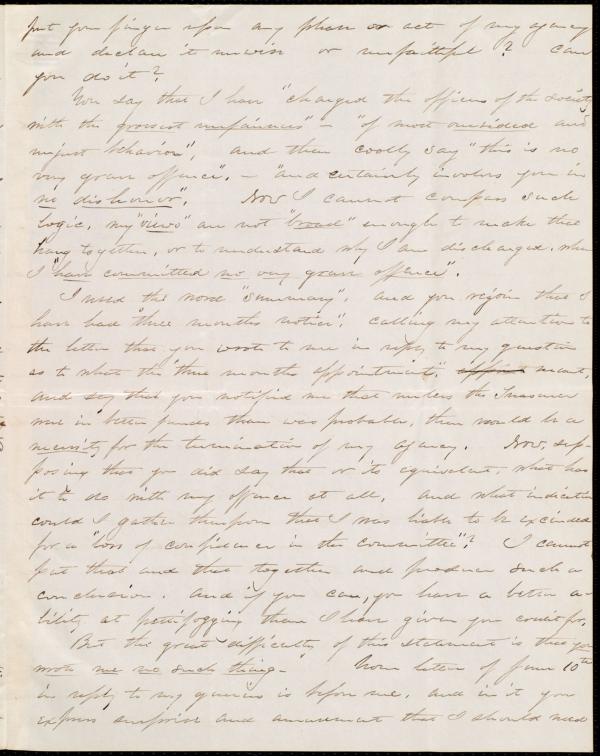 put your finger upon any phase or act of my agency
and declare it unwise or unfaithful? Can
you do it?
You say that I have "charged the officers of the society
with the grossest unfairness" – "of most onesided and
unjust behavior", and then coolly say "this is no
very grave offence". – "and certainly involves you in
no dishonor". Now I cannot compass such
logic, my "views" are not "broad" enough to make this
hang together, or to understand why I am discharged, when
I "have committed no very grave offence".
I used the word "summary", and you rejoin that I
have had "three months notice", calling my attention to
the letter that you wrote to me in reply to my question
as to what the "three months appointment," meant,
and say that you notified me that unless the Treasurer
was in better funds than was probable, there would be a
necessity for the termination of my agency. Now, sup-
posing that you did say that or its equivalent, what has
it to do with my offence at all, and what indication
could I gather therefrom that I was liable to be excinded
for a "loss of confidence in the committee"? I cannot
put that and that together and produce such a
conclusion. And if you can, you have a better a-
bility at pettifogging than I have given you credit for.
But the great difficulty of this statement is that you
wrote me no such thing. – Your letter of June 10th
in reply to my queries is before me, and in it you
express surprise and amusement that I should need